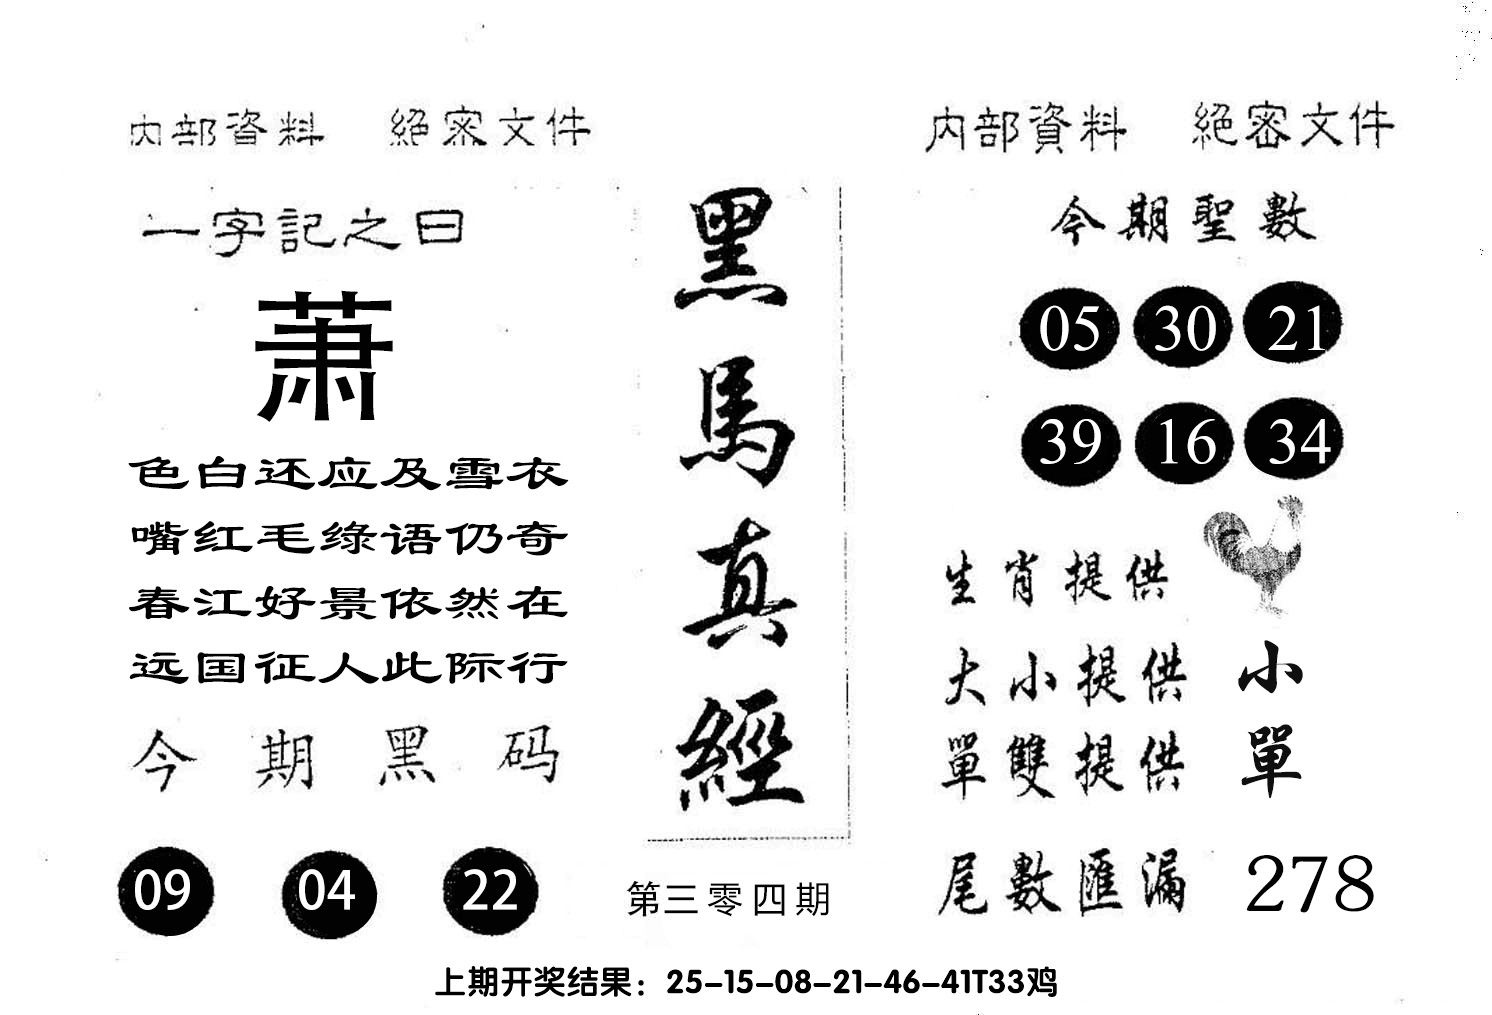 内部資料 絕密文件
一字記之曰
萧
色白还应及雪衣
嘴红毛绿语仍奇
春江好景依然在
远国征人此际行
今期黑码
09 04 22
黑馬真經
第三零四期
内部資料 絕密文件
今期聖數
05 30 21
39 16 34
生肖提供
大小提供 小
單雙提供 單
尾數匯漏 278
上期开奖结果：25-15-08-21-46-41T33鸡